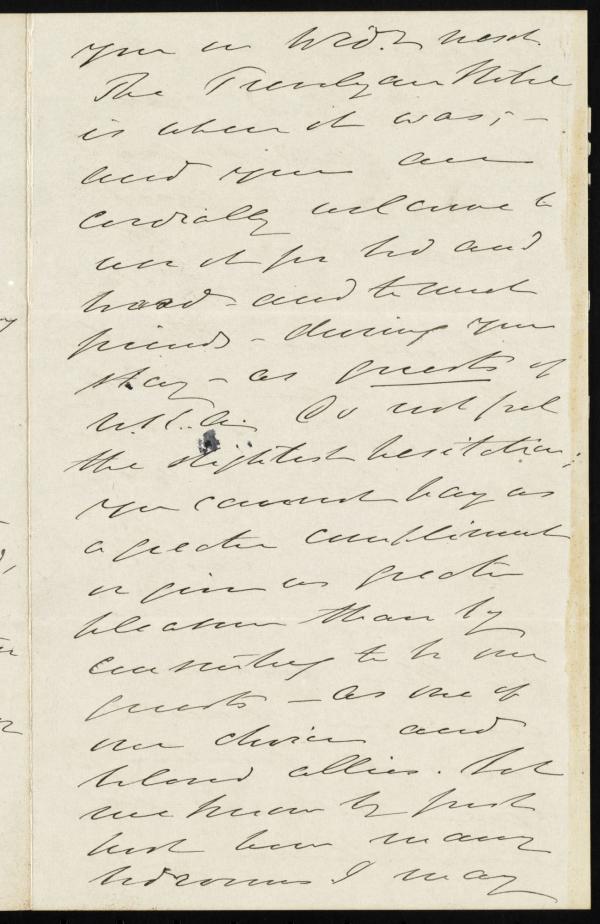 you in bed. & next
The Trevelyan Hotel
is where it was; –
and you are
cordially welcome to
use it for bed and
board – and to meet
friends – during your
stay – as guests of
Do not feel
the slightest hesitation;
you cannot pay us
a greater compliment
or give us greater
pleasure than by
consenting to be our
guests – as one of
our choice and
beloved allies. Let
me know by first
post how many
bedrooms I may